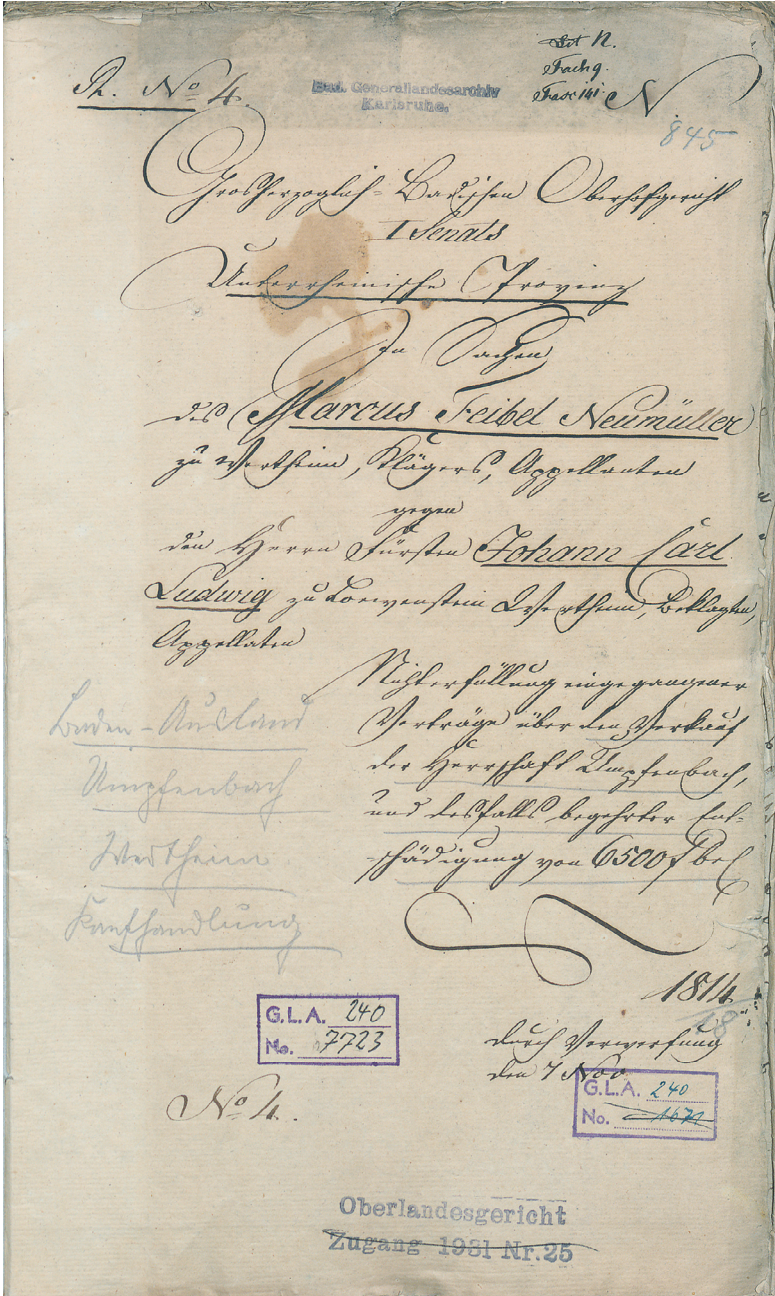 Lit N.
Fach 9.
Fasc 141
R. No 4.
Bad. Generallandesarchiv
Karlsruhe.
N
845
Grosherzoglich-Badischen Oberhofgericht
I Senats
Unterrheinische Provinz
In Sachen
des Marcus Feibel Neumüller
zu Wertheim, Klägers, Appellanten
gegen
den Herrn Fürsten Johann Carl
Ludwig zu Loewenstein Wertheim, Beklagten,
Appellaten
Nichterfüllung eingegangener
Verträge über den Verkauf
der Herrschaft Umpfenbach,
und desfalls begehrter Ent-
schädigung von 6500 f bet
Baden-Ausland
Umpfenbach
Wertheim
Kaufhandlung
1814
18
durch Verwerfung
den 7 Nov.
G.L.A. 240
No. 7723
G.L.A. 240
No. 1671
No 4.
Oberlandesgericht
Zugang 1931 Nr. 25